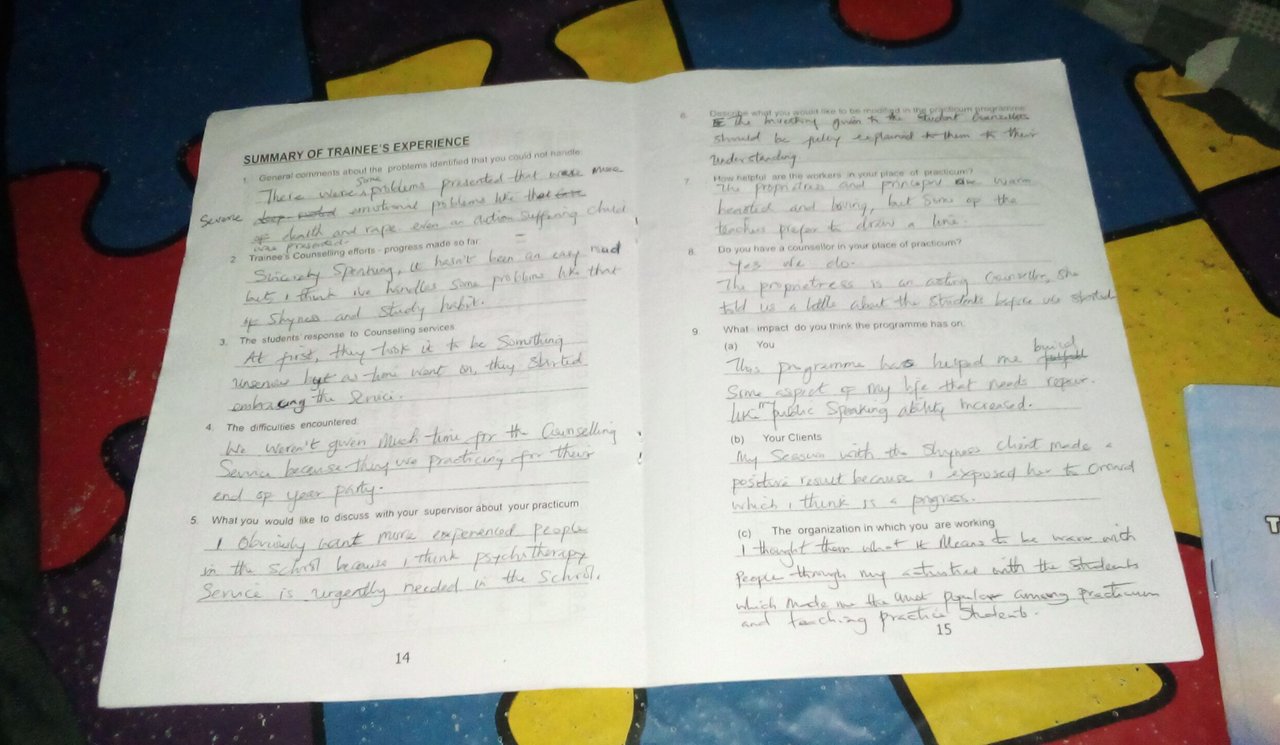 SUMMARY OF TRAINEE'S EXPERIENCE
1. General comments about the problems identified that you could not handle:
There were some problems presented that were more
Severe emotional problems like that
of death and rape even an autism suffering child
was presented.
2 Trainee's Counselling efforts - progress made so far:
Sincerely Speaking, it hasn't been an easy road
but, I think I've handled Some problems like that
of Shyness and Study habit.
3. The students response to Counselling services
At first, they took it to be Something
but as time went on, they started
embracing the Service.
4. The difficulties encountered
We weren't given Much time for the Counselling
Service because they were practicing for their
end of year party.
5. What you would like to discuss with your supervisor about your practicum
I Obviously want more experienced people
in the School because I think psychotherapy
Service is urgently needed in the School.
14
6. Describe what you would like to be modified in the practicum programme
the briefing given to the Student Counsellors
should be fully explained to them to their
understanding
7. How helpful are the workers in your place of practicum?
The proprietress and principal are warm
hearted and loving, but Some of the
teachers prefer to draw a line.
8. Do you have a counsellor in your place of practicum?
Yes we do.
The proprietress is an acting Counsellor, She
told us a little about the Students before we started
9. What impact do you think the programme has on:
(a) You
This programme has helped me build
Some aspect of my life that needs repair.
like my public Speaking ability increased.
(b) Your Clients
My Session with the Shyness Client made a
positive result because I exposed her to Crowd
which I think is a progress.
(c) The organization in which you are working
I thought them what it Means to be warm with
people through my activities with the Students
which made me the most popular among practicum
and teaching practice Students.
15
T